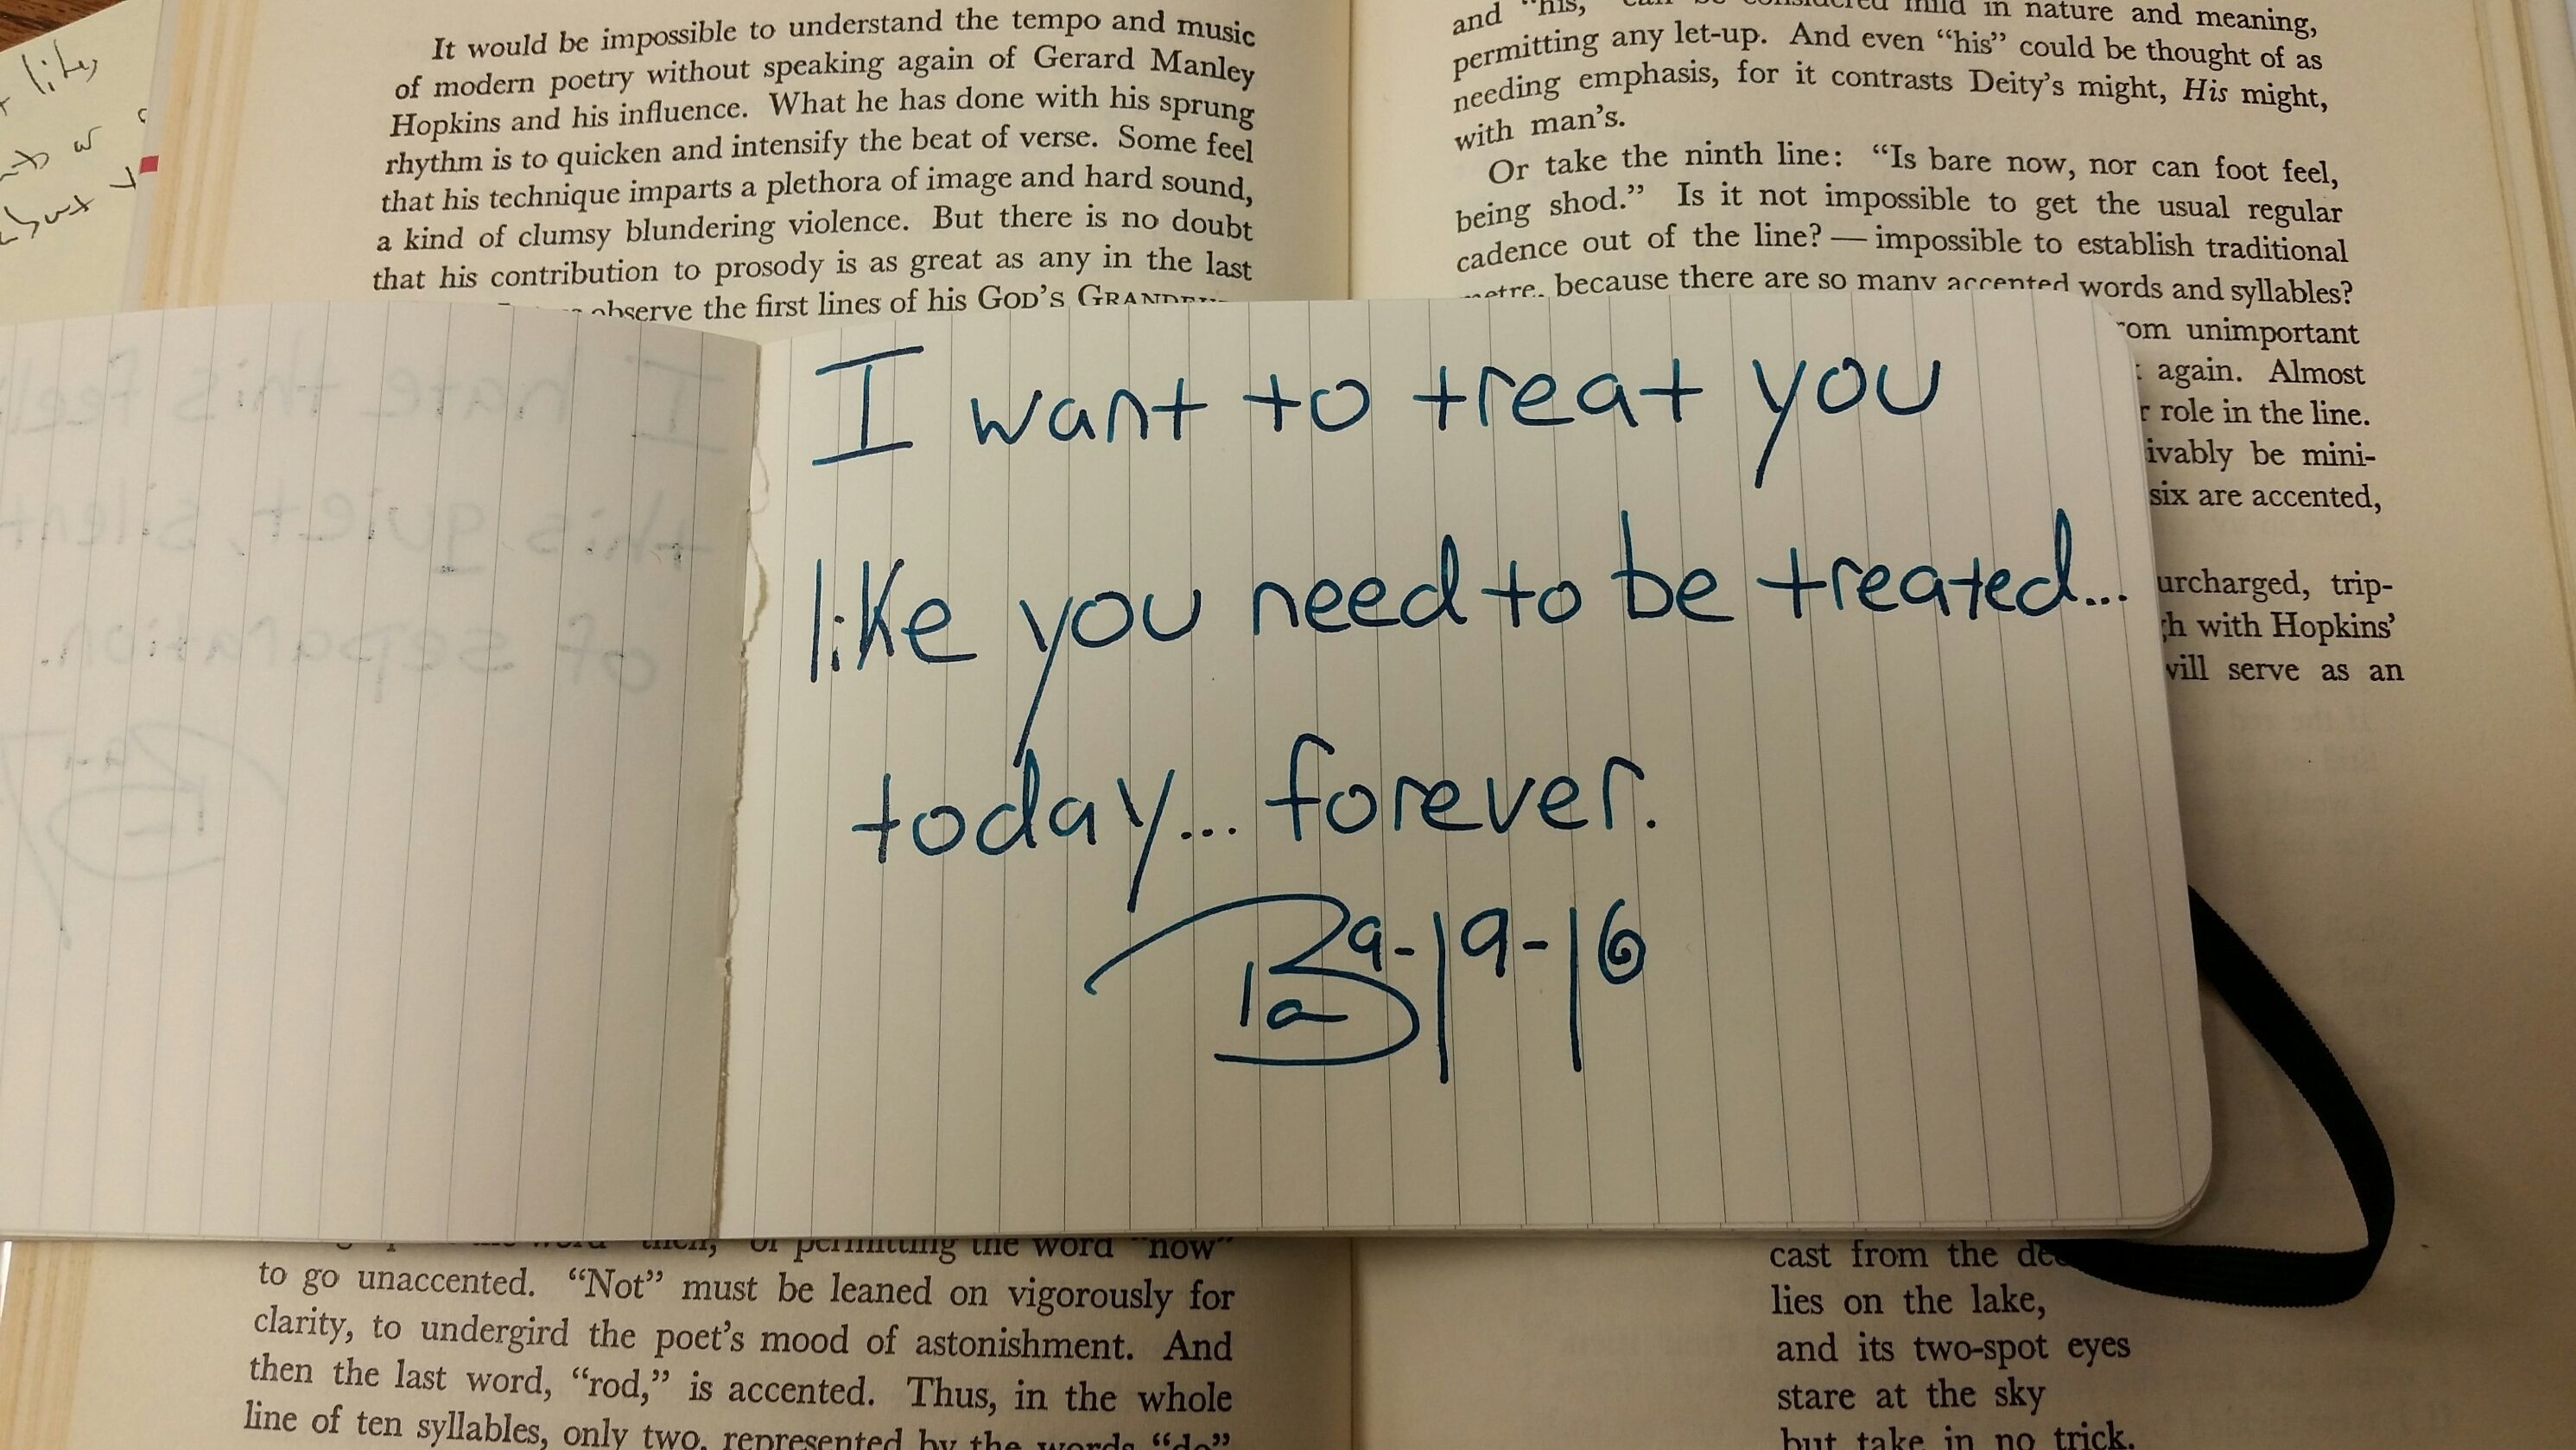 It would be impossible to understand the tempo and music
of modern poetry without speaking again of Gerard Manley
Hopkins and his influence. What he has done with his sprung
rhythm is to quicken and intensify the beat of verse. Some feel
that his technique imparts a plethora of image and hard sound,
a kind of clumsy blundering violence. But there is no doubt
that his contribution to prosody is as great as any in the last
observe the first lines of his GOD'S
and "his," can be considered mild in nature and meaning,
permitting any let-up. And even "his" could be thought of as
needing emphasis, for it contrasts Deity's might, His might,
with man's.
Or take the ninth line: "Is bare now, nor can foot feel,
being shod." Is it not impossible to get the usual regular
cadence out of the line? — impossible to establish traditional
metre, because there are so many accented words and syllables?
unimportant
again. Almost
role in the line.
be mini-
six are accented,
trip-
with Hopkins'
serve as an
I have this
this quiet, silent
of separation.
I want to treat you
like you need to be treated...
today... forever.
9-19-16
"then," or permitting the word "now"
to go unaccented. "Not" must be leaned on vigorously for
clarity, to undergird the poet's mood of astonishment. And
then the last word, "rod," is accented. Thus, in the whole
line of ten syllables, only two, represented by the words "do"
cast from the
lies on the lake,
and its two-spot eyes
stare at the sky
but take in no trick.